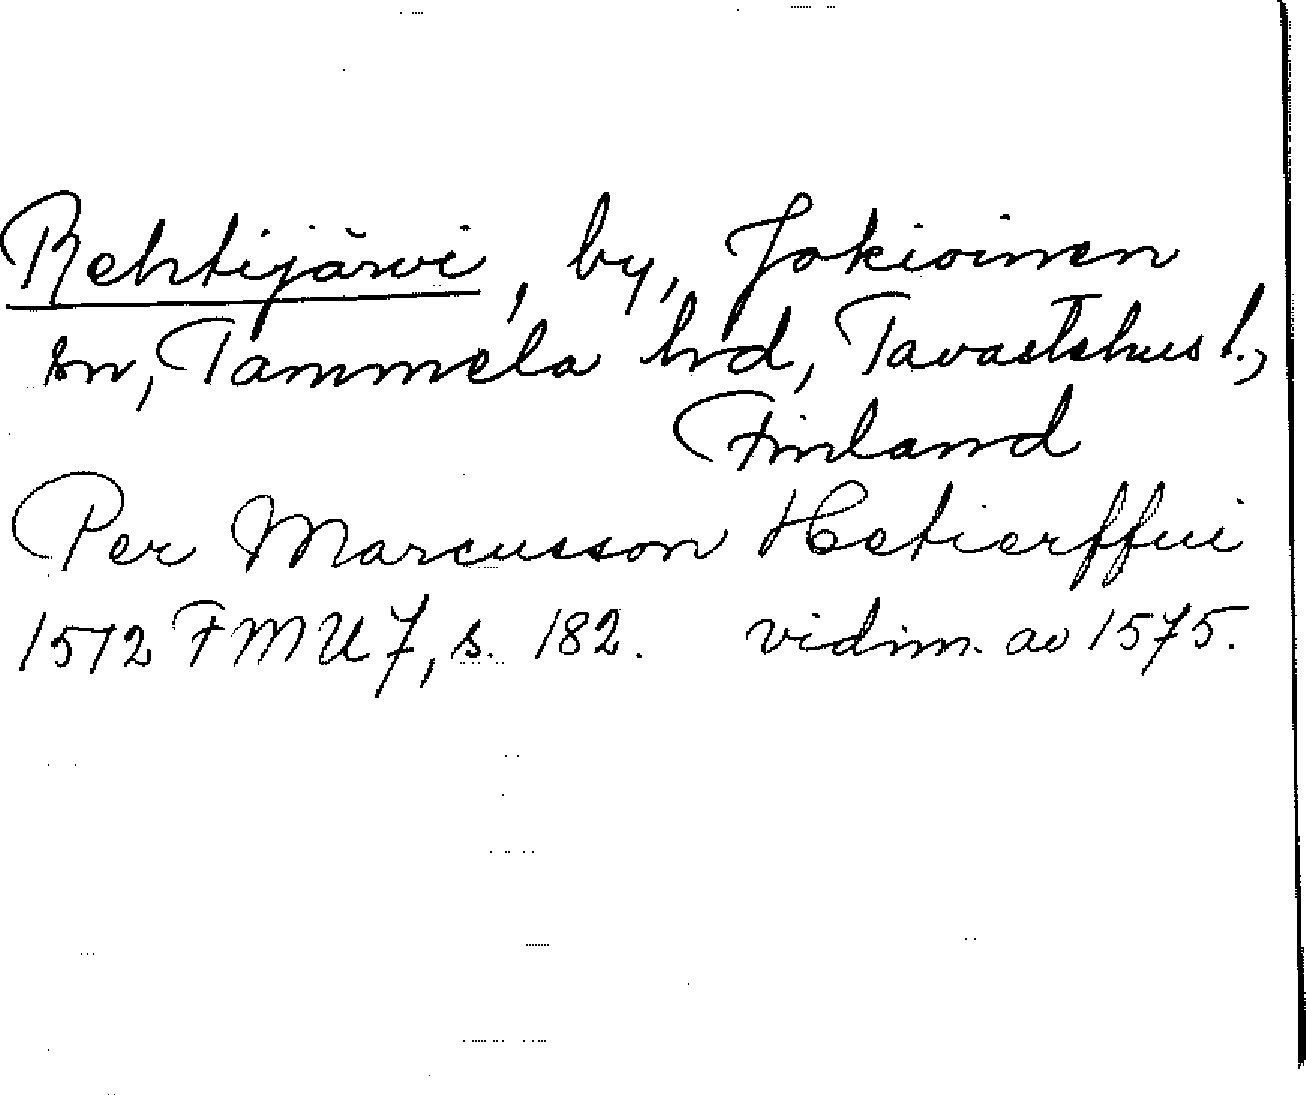 Rehtijärvi, by, Jokioinen
sn, Tammela hrd, Tavastehus l.,
Finland
Per Marcusson Hetierffui
1572 FMU 7, s. 182. vidim. av 1575.